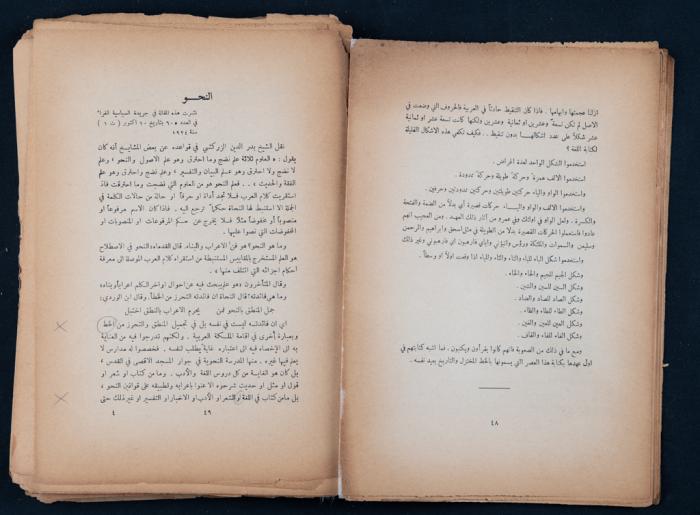 ازلنا عجمتها وابهامها . فاذا كان التنقيط حادثاً في العربية فالحروف التي وضعت في
الاصل لم تكن تسعة وعشرين او ثمانية وعشرين ولكنها كانت تسعة عشر او ثمانية
عشر شكلاً على عدد اشكالها بدون تنقيط . . فكيف تكفي هذه الاشكال القليلة
لكتابة اللغة ؟
استخدموا الشكل الواحد لعدة اغراض .
استخدموا الالف همزة وحركة طويلة وحركة ممدودة . .
واستخدموا الواو والياء حركتين طويلتين وحركتين ممدودتين وحرفين .
واستخدموا الالف والواو والياء حركات قصيرة أي بدلاً من الضمة والفتحة
والكسرة . ولعل الواو في اولئك وفي عمرو من آثار ذلك العهد . ومن العجيب انهم
عادوا فاستعملوا الحركات القصيرة بدلاً من الطويلة في مثل اسحق وابراهيم والرحمن
وسليمن والسموات والملئكة وغير ذلك
واستخدموا شكل الباء للباء والتاء والثاء والياء اذا وقعت اولاً او وسطاً .
وشكل الجيم للجيم والحاء والخاء .
وشكل السين للسين والشين .
وشكل الصاد للصاد والضاد .
وشكل الطاء للطاء والظاء .
وشكل العين للعين والغين .
وشكل الفاء للفاء والقاف .
ومع ما في ذلك من الصعوبة فانهم كانوا يقرأون ويكتبون . فما اشبه كتابتهم في
اول عهدها بكتابة هذا العصر التي يسمونها بالخط المختزل والتاريخ يعيد نفسه .
٤٨
النحـو
نشرت هذه المقالة في جريدة السياسية الغراء
في العدد ٦٠٥ بتاريخ ١٠ اكتوبر ( ت ١ )
سنة ١٩٢٤
نقل الشيخ بدر الدين الزركشي في قواعده عن بعض المشايخ أنه كان
يقول : « العلوم ثلاثة علم نضج وما احترق وهو علم الاصول والنحو ، وعلم
لا نضج ولا احترق وهو علم البيان والتفسير ، وعلم نضج واحترق وهو علم
الفقه والحديث » . . فعلم النحو هو من العلوم التي نضجت وما احترقت فاذا
استقريت كلام العرب فلا تجد أداة او حرفاً او حالة من حالات الكلمة في
الجملة الا استنبط لها النحاة حكماً ترجع اليه . فاذا كان الاسم مرفوعاً او
منصوباً أو مخفوضاً مثلاً فلا يخرج عن حكم المرفوعات او المنصوبات او
المخفوضات التي نصوا عليها .
وما هو النحو ؟ هو فن الاعراب والبناء. قال القدماء « النحو في الاصطلاح
هو العلم المستخرج بالمقاييس المستنبطة من استقراء كلام العرب الموصلة الى معرفة
أحكام اجزائه التي ائتلف منها » .
وقال المتأخرون « هو علم يبحث فيه عن احوال اواخر الكلم اعراباً وبناء »
وما هي فائدته ؟ قال النحاة ان فائدته التحرز من الخطأ. وقال ابن الوردي :
جمل المنطق بالنحو فمن يحرم الاعراب بالنطق اختبل
اي ان فائدته ليست في نفسه بل في تجميل المنطق والتحرز من الخط
وبعبارة أخرى في اقامة الملكة العربية . ولكنهم تدرجوا فيه من العناية
به الى الاحصاء فيه الى اعتباره غاية يطلب لنفسه . فخصصوا له مدارس لا
يعلم فيها غيره . منها المدرسة النحوية في جوار المسجد الاقصى في القدس ،
بل كان هو الغاية من كل دروس اللغة والأدب . وما من كتاب او شعر او
قول او مثل او حديث شرحوه الا عنوا باعرابه وتطبيقه على قوانين النحو ،
بل ما من كتاب في اللغة او الشعر او الأدب او الاخبار او التفسير او غير ذلك حتى
٤٩ ٤